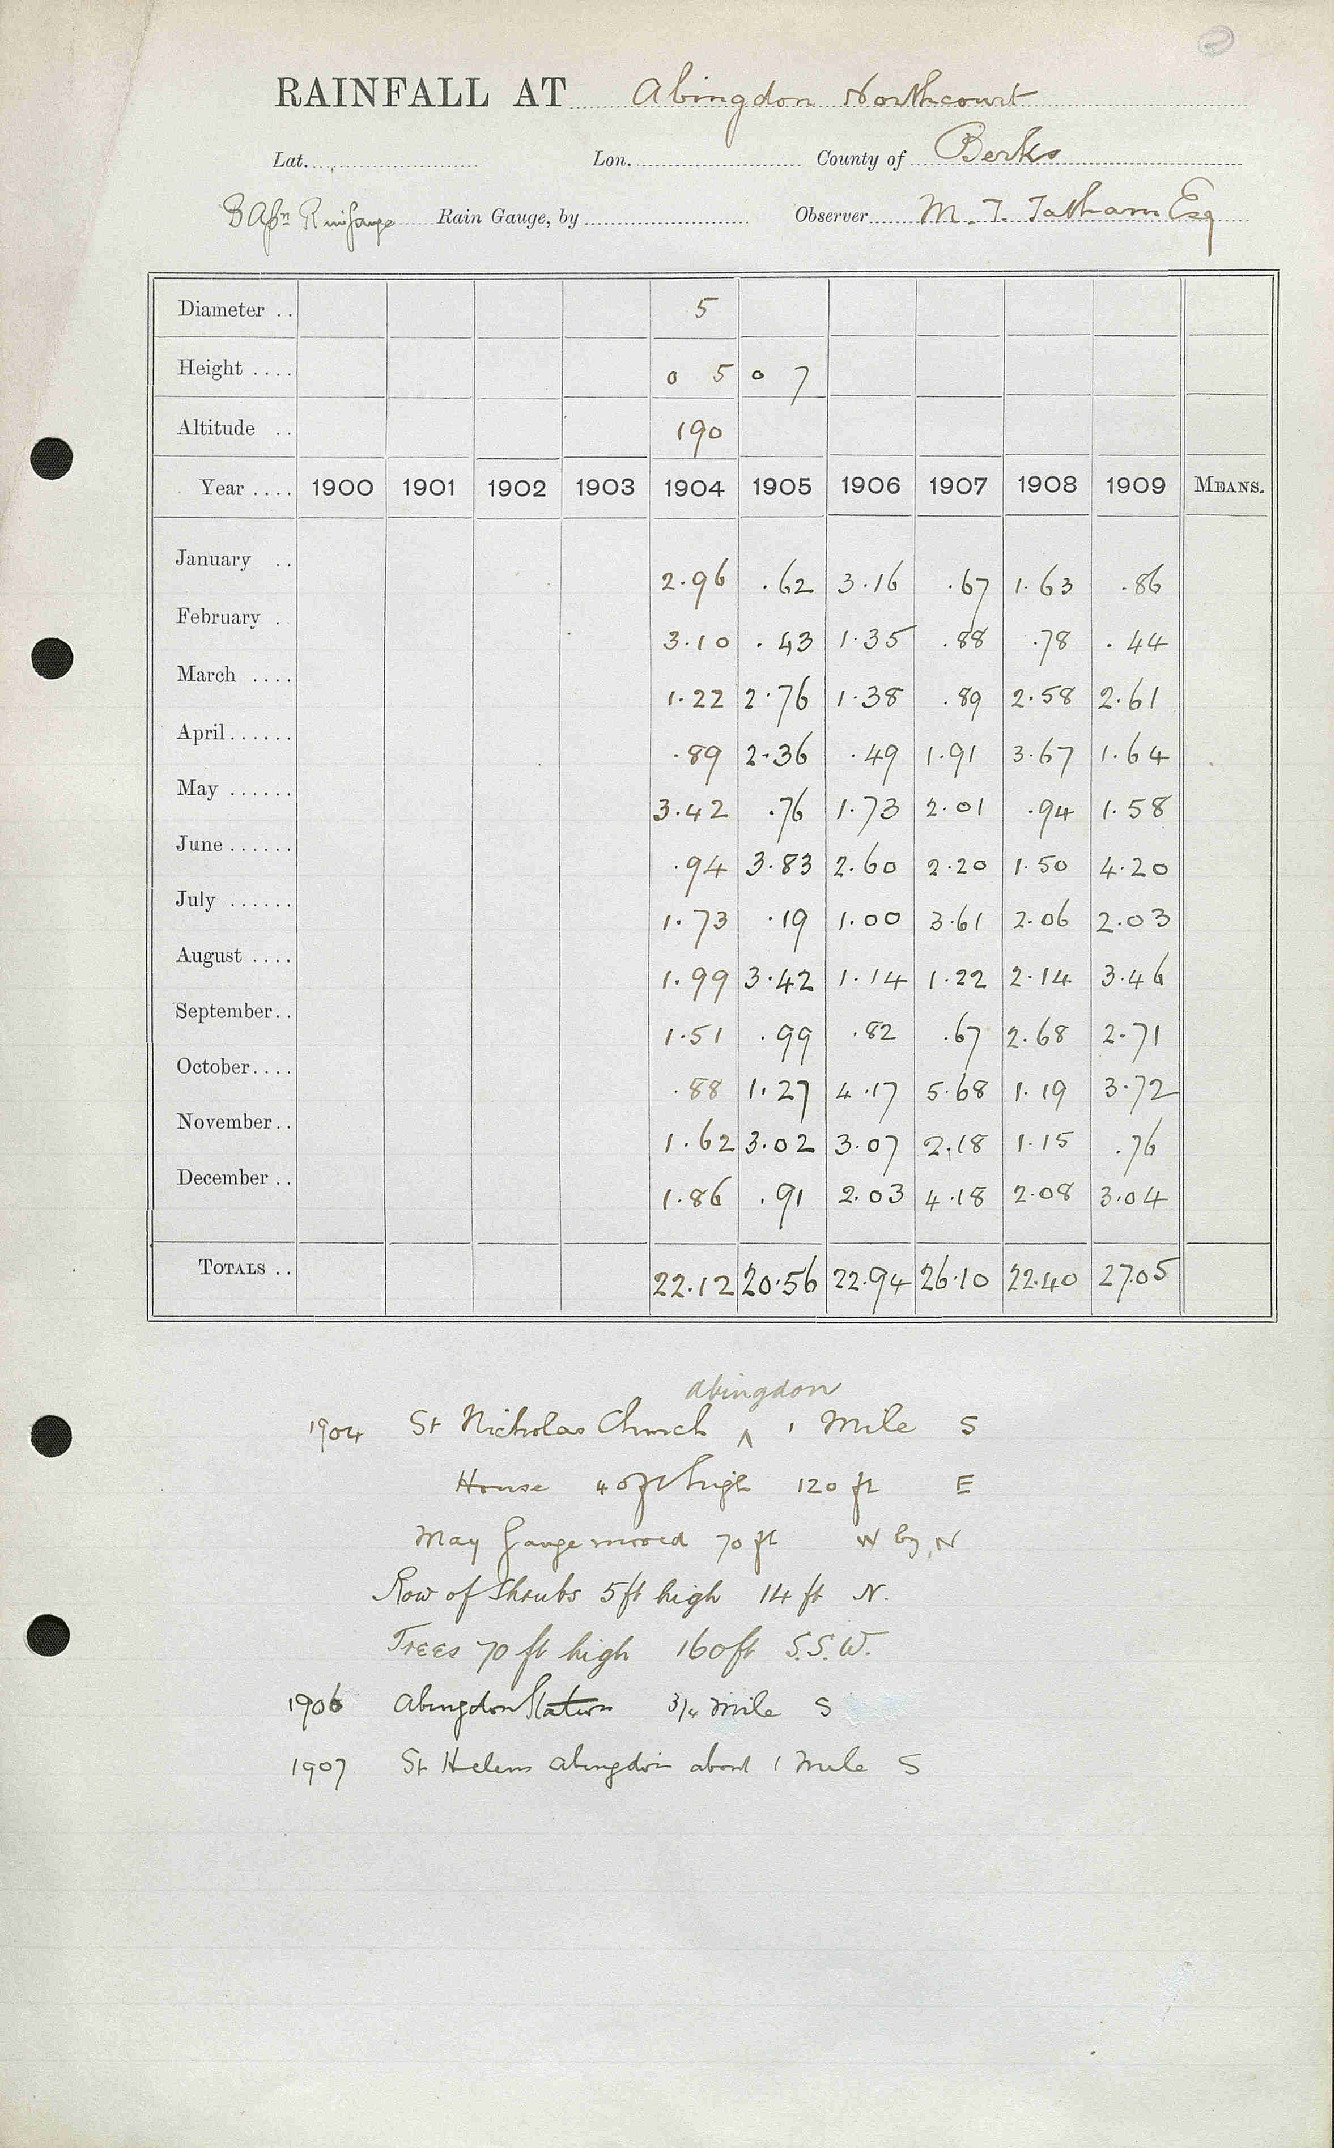 RAINFALL AT Abingdon Northcourt
Lat. Lon. County of Berks
Rain Gauge, by Observer M. T. Tatham Esq
Diameter .. 5
Height .... 0 5 0 7
Altitude .. 190
Year .... 1900 1901 1902 1903 1904 1905 1906 1907 1908 1909 MEANS.
January .. 2.96 .62 3.16 .67 1.63 .86
February . 3.10 .43 1.35 .88 .78 .44
March .... 1.22 2.76 1.38 .89 2.58 2.61
April...... .89 2.36 .49 1.91 3.67 1.64
May ...... 3.42 .76 1.73 2.01 .94 1.58
June ...... .94 3.83 2.60 2.20 1.50 4.20
July ...... 1.73 .19 1.00 3.61 2.06 2.03
August .... 1.99 3.42 1.14 1.22 2.14 3.46
September.. 1.51 .99 .82 .67 2.68 2.71
October.... .88 1.27 4.17 5.68 1.19 3.72
November.. 1.62 3.02 3.07 2.18 1.15 .76
December .. 1.86 .91 2.03 4.18 2.08 3.04
TOTALS .. 22.12 20.56 22.94 26.10 22.40 27.05
Abingdon
1904 St Nicholas Church ^ 1 Mile S
House 40ft high 120 ft E
May Gauge moved 70 ft W by N
Row of Shrubs 5ft high 14 ft N.
Trees 70 ft high 160ft S.S.W.
1906 Abingdon Station 3/4 Mile S
1907 St Helens Abingdon about 1 Mile S